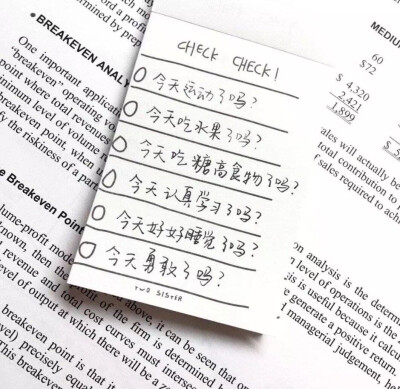 CHECK CHECK!
今天运动了吗?
今天吃水果了吗?
今天吃糖高食物了吗?
今天认真学习了吗?
今天好好睡觉了吗?
今天勇敢了吗?
TWO SISTER
• BREAKEVEN ANALY
One important applica
"breakeven" operating vo
point where total revenue
minimum level of volume re
breakeven point, when u
fy the riskiness of a par
he Breakeven Point
lume-profit mode
nown, then the
revenue and total cost curves must intersect
level of output at which there will be a z
breakeven point is that
vel) precisely equal
This breakeven
MEDIUM
60
$72
$ 4,320
2,421
1,899
ales will actually be
total contribution to
f sales required to achie
on analysis is the determ
n level of operations is the
is useful because it calcu
generate a positive return
managerial judgement he
above, it can be seen that op